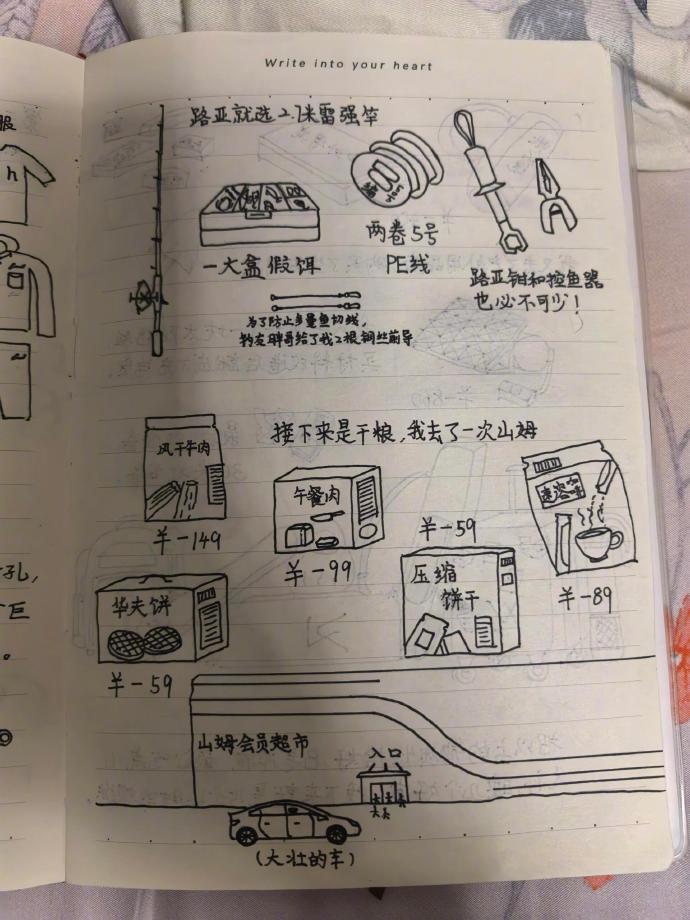 Write into your heart
服
h
路亚就选2.1米雷强竿
两卷5号
PE线
一大盒假饵
路亚钳和控鱼器
也必不可少!
为了防止多曼鱼切线,
钓友胖哥给了我2根钢丝前导
接下来是干粮,我去了一次山姆
风干牛肉
¥-149
午餐肉
¥-99
¥-59
速溶咖啡
¥-89
华夫饼
¥-59
压缩
饼干
孔,
巨
。
山姆会员超市
入口
(大壮的车)